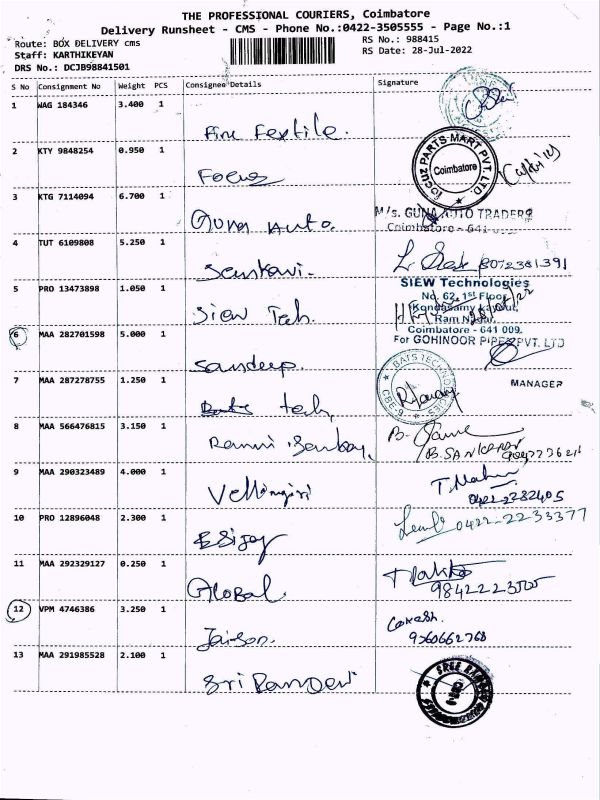 THE PROFESSIONAL COURIERS, Coimbatore
Delivery Runsheet - CMS - Phone No.:0422-3505555 - Page No.:1
Route: BOX DELIVERY cms
RS No.: 988415
Staff: KARTHIKEYAN
RS Date: 28-Jul-2022
DRS No.: DCJB98841501
S No Consignment No Weight PCS Consignee Details Signature
1 WAG 184346 3.400 1
2 KTY 9848254 0.950 1 Focus
FOCUZ PARTS MART PVT. LTD. Coimbatore
3 KTG 7114094 6.700 1 Guna Auto.
M/s. GUNA AUTO TRADERS
Coimbatore - 641
4 TUT 6109808 5.250 1
8072381391
5 PRO 13473898 1.050 1 Siew Tech.
SIEW Technologies
No. 62, 1st Floor,
Kondasamy Layout,
Ram Nagar,
Coimbatore - 641 009.
6 MAA 282701598 5.000 1 Sandeep.
For GOHINOOR PIPES PVT. LTD
MANAGER
7 MAA 287278755 1.250 1 Bats tech
BATS TECHNOLOGIES CBE-9
8 MAA 566476815 3.150 1
B.SANKARAN
9 MAA 290323489 4.000 1 Vellingiri
0422-2382405
10 PRO 12896048 2.300 1
0422-2233377
11 MAA 292329127 0.250 1 Global.
12 VPM 4746386 3.250 1 Jaison.
9360662768
13 MAA 291985528 2.100 1